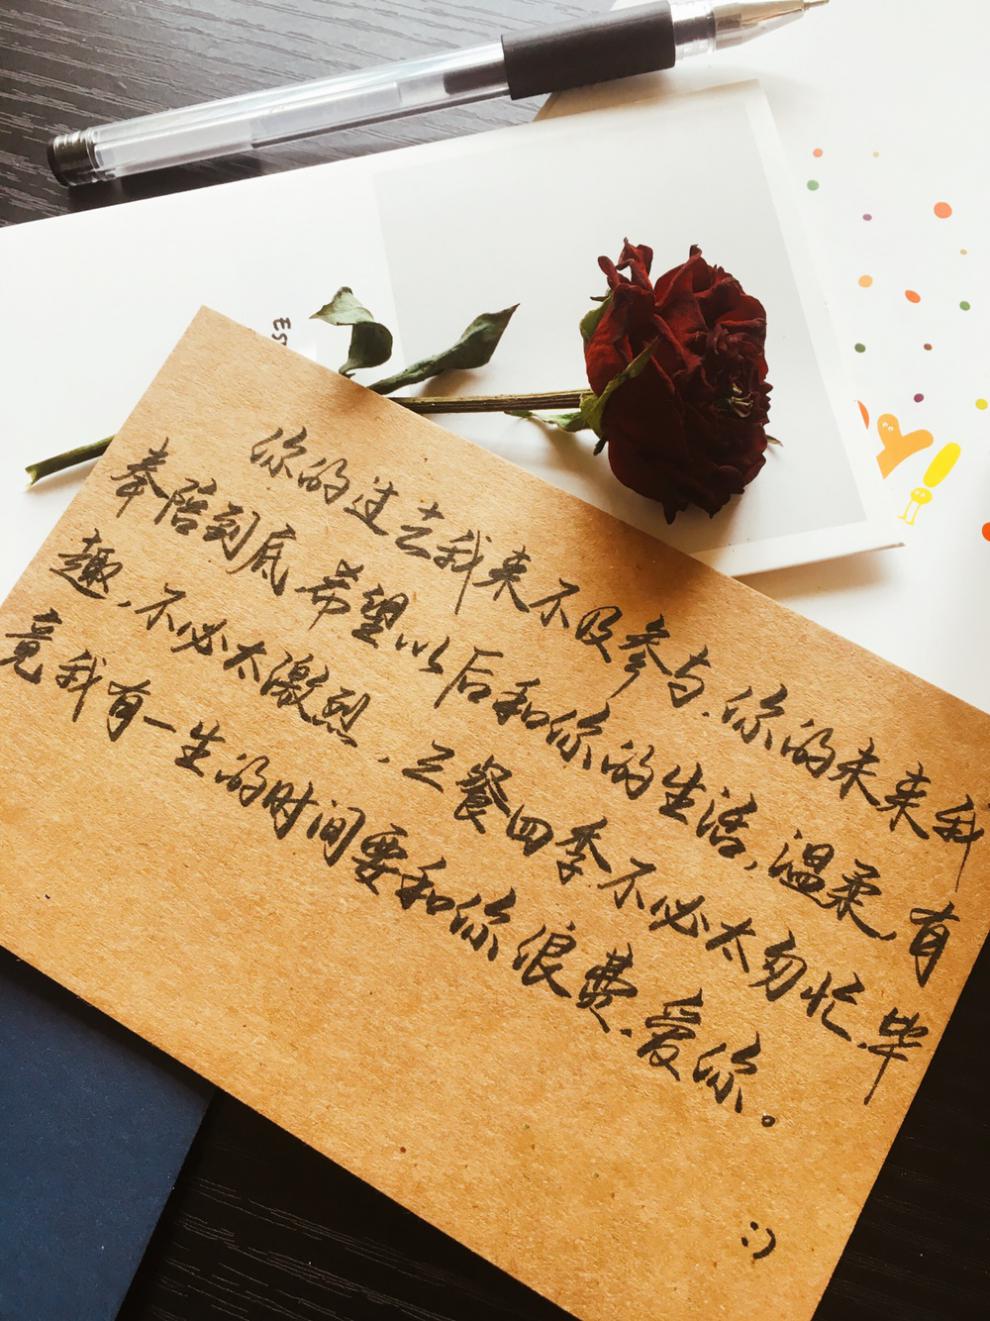 ES
你的过去我来不及参与.你的未来我
奉陪到底.希望以后和你的生活,温柔,有
趣,不必太激烈,三餐四季.不必太匆忙.毕
竟我有一生的时间要和你浪费.爱你。
:)